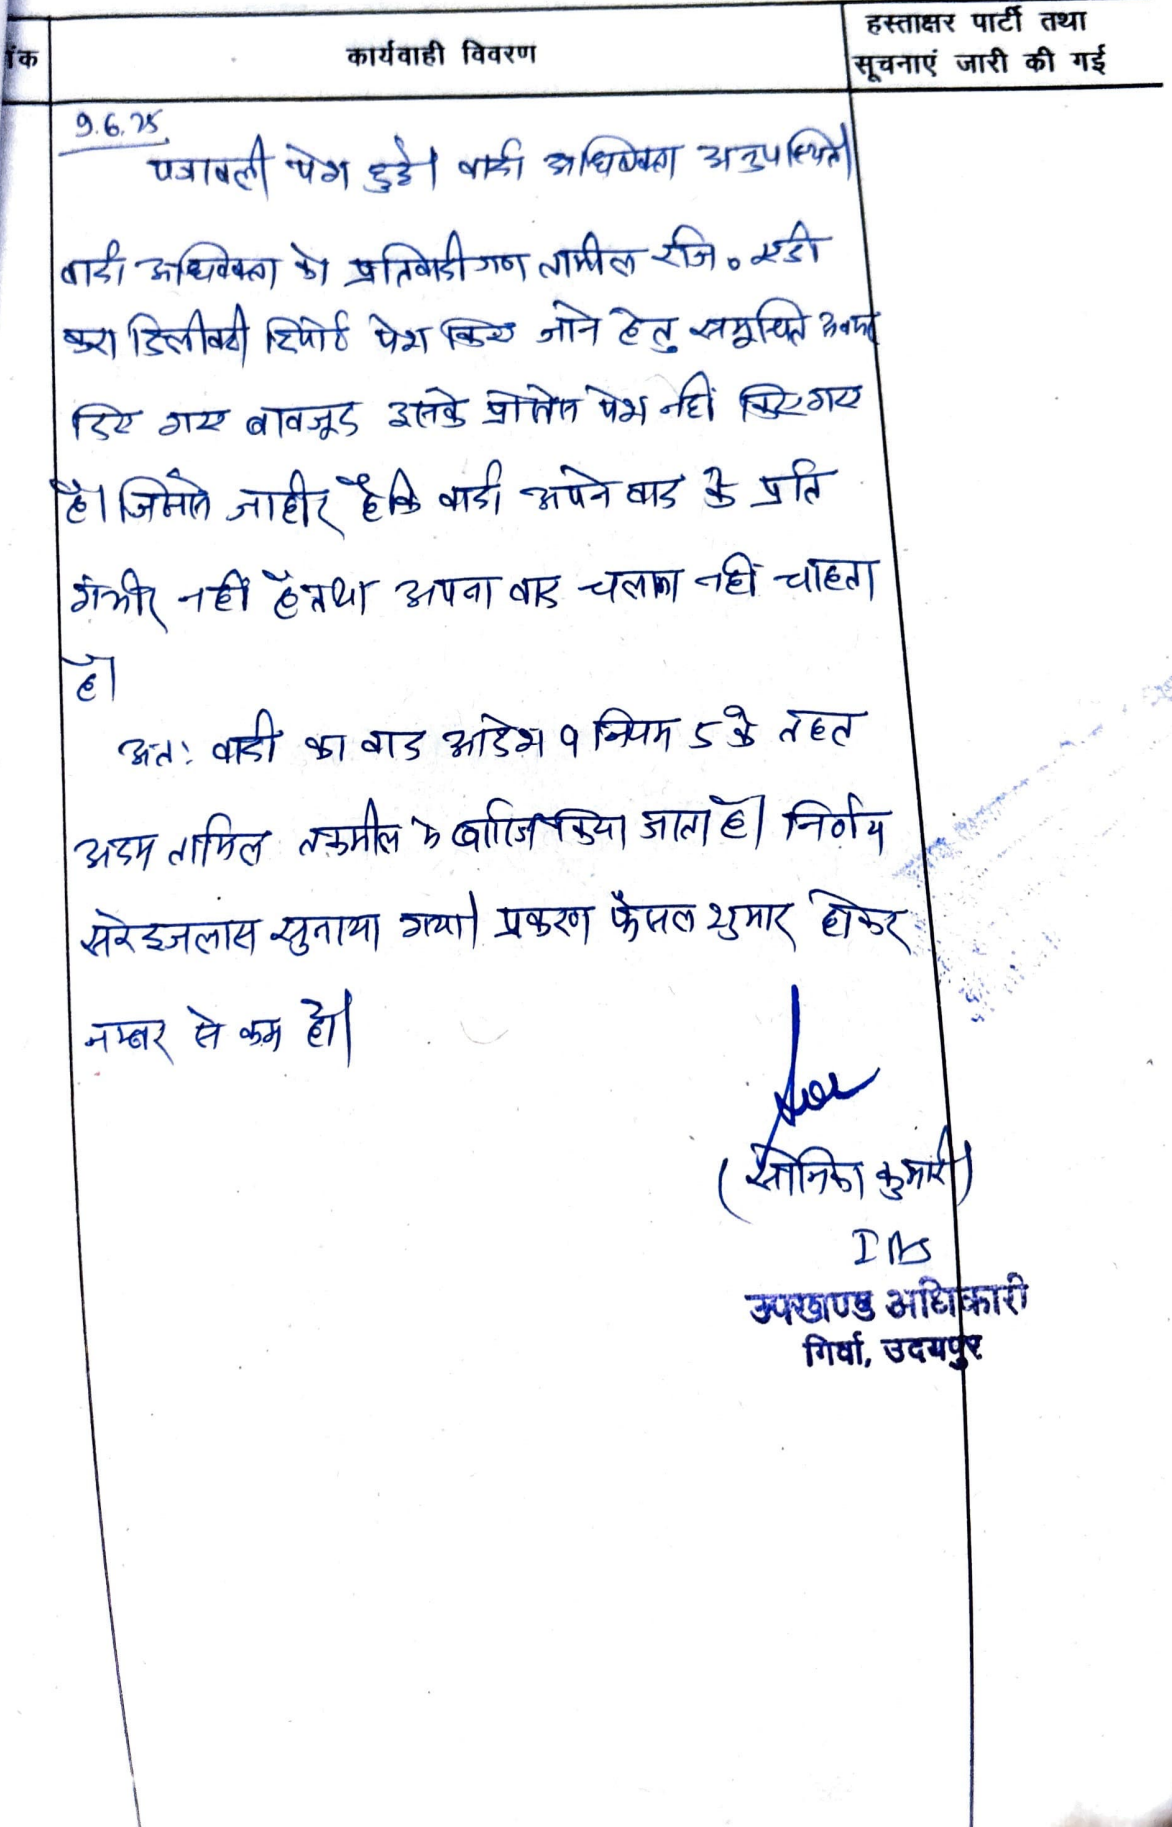 ंक
कार्यवाही विवरण
हस्ताक्षर पार्टी तथा
सूचनाएं जारी की गई
9.6.25
पत्रावली पेश हुई। वादी अधिवक्ता अनुपस्थित।
वादी अधिवक्ता को प्रतिवादीगण तामील रजि० एडी
करा डिलीवरी रिपोर्ट पेश किए जाने हेतु समुचित अवसर
दिए गए बावजूद इसके पेश नहीं किए गए
है। जिससे जाहीर है कि वादी अपने वाद के प्रति
गंभीर नहीं है तथा अपना वाद चलाना नहीं चाहता
है।
अतः वादी का वाद आदेश 9 नियम 5 के तहत
अदम तामिल तकमील में खारिज किया जाता है। निर्णय
सरेइजलास सुनाया गया। प्रकरण फैसल शुमार होकर
नम्बर से कम हो।
(सोनिका कुमारी)
IAS
उपखण्ड अधिकारी
गिर्वा, उदयपुर